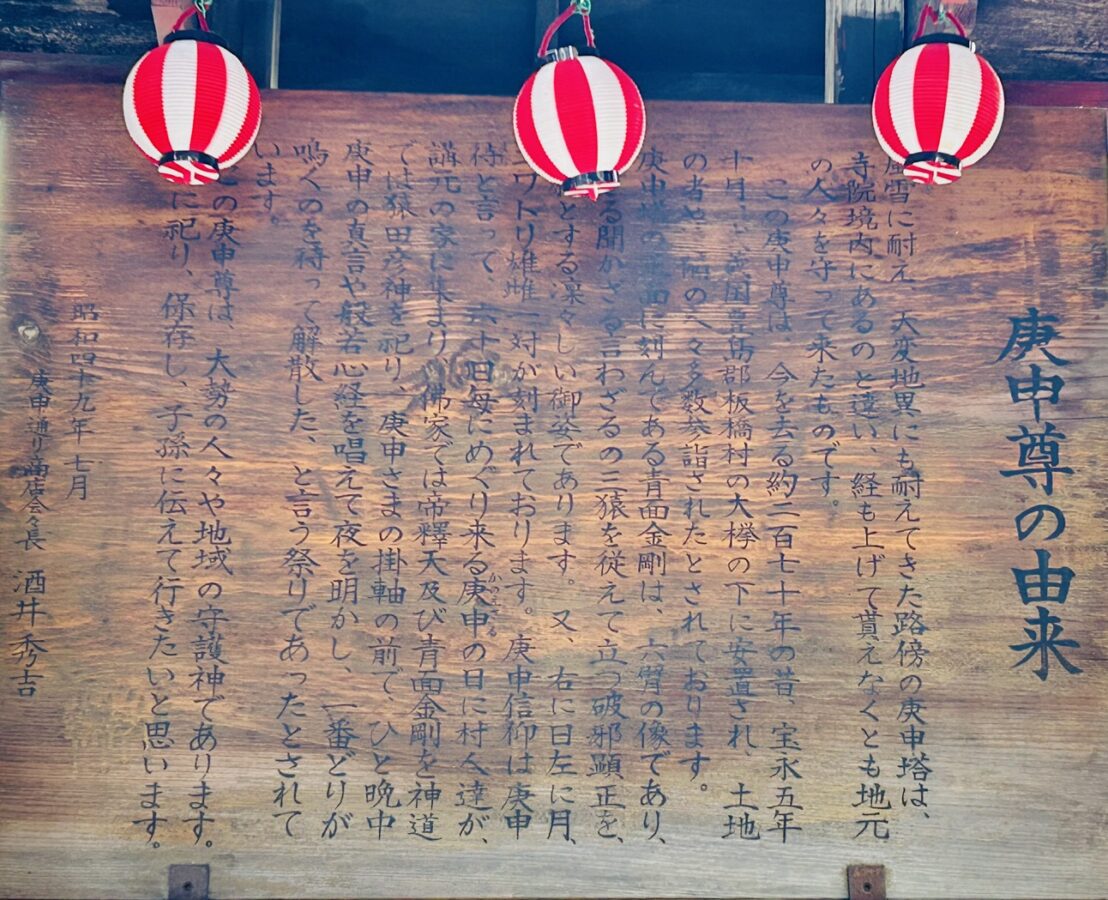 庚申尊の由来
雪に耐え 大変地異にも耐えてきた路傍の庚申塔は、
寺院境内にあるのと違い、経も上げて貰えなくとも地元
の人々を守って来たものです。
この庚申尊は、今を去る約二百七十年の昔、宝永五年
十月 国豊島郡板橋村の大欅の下に安置され 土地
の者や の人々多数参詣されたとされております。
庚申 の 面に刻んである青面金剛は、六臂の像であり、
る聞かざる言わざるの三猿を従えて立つ破邪顕正を、
とする凜々しい御姿であります。又、右に日左に月、
ワトリ雄雌一対が刻まれております。庚申信仰は庚申
待と言って、六十日毎にめぐり来る庚申の日に村人達が、
講元の家に集まり、佛家では帝釋天及び青面金剛を神道
では猿田彦神を祀り、庚申さまの掛軸の前で、ひと晩中
庚申の真言や般若心経を唱えて夜を明かし、一番どりが
鳴くのを待って解散した、と言う祭りであったとされて
います。
この庚申尊は、大勢の人々や地域の守護神であります。
に祀り、保存し、子孫に伝えて行きたいと思います。
昭和四十九年七月
庚申通り商店会々長 酒井秀吉